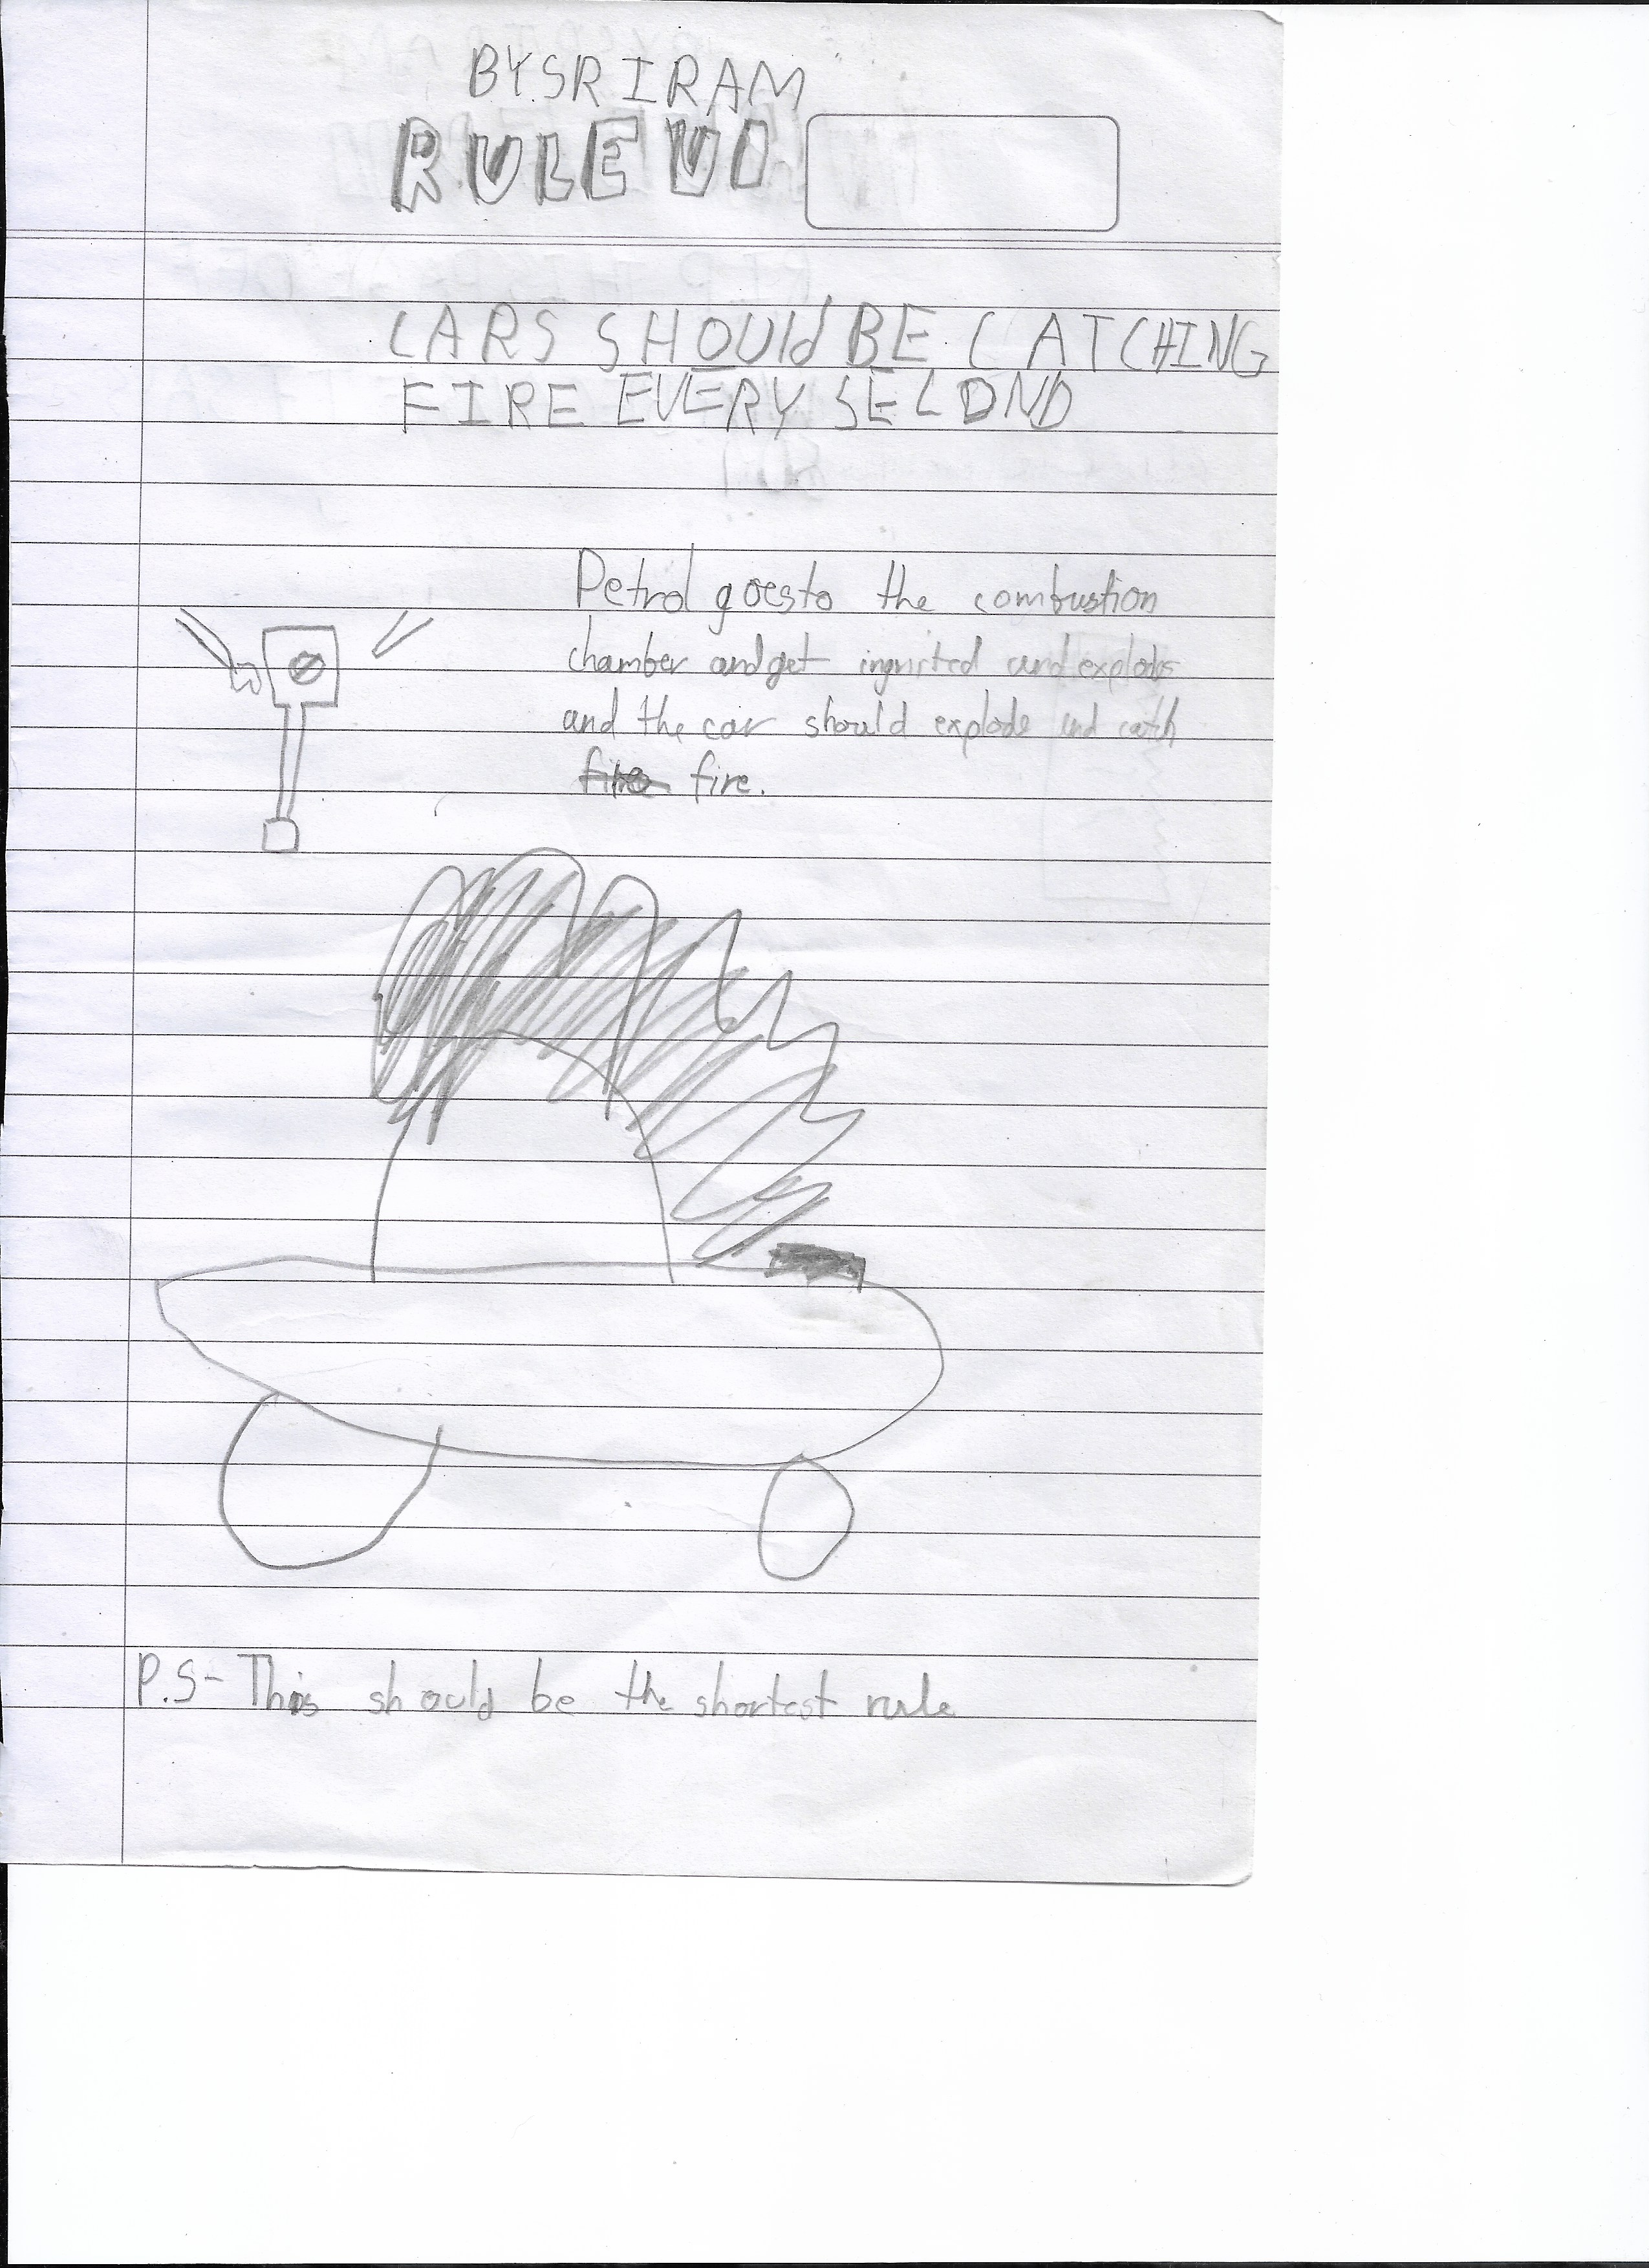 BY SRIRAM
RULE VI
CARS SHOULd BE CATCHING
FIRE EVERY SECOND
Petrol goes to the combustion
chamber and get ingnited and explodes
and the car should explode and catch
fire fire.
P.S- This should be the shortest rule